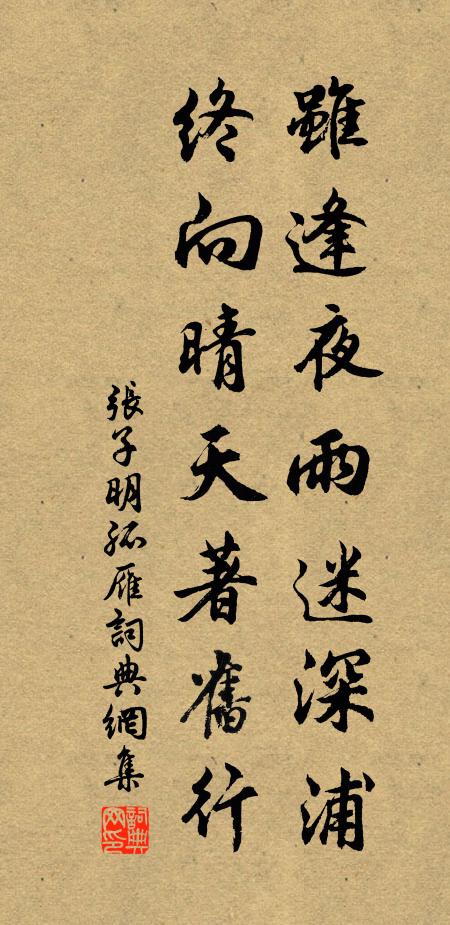 雖逢夜雨迷深浦
終向晴天著舊行
張子明孤雁詞典網集
詞典网印